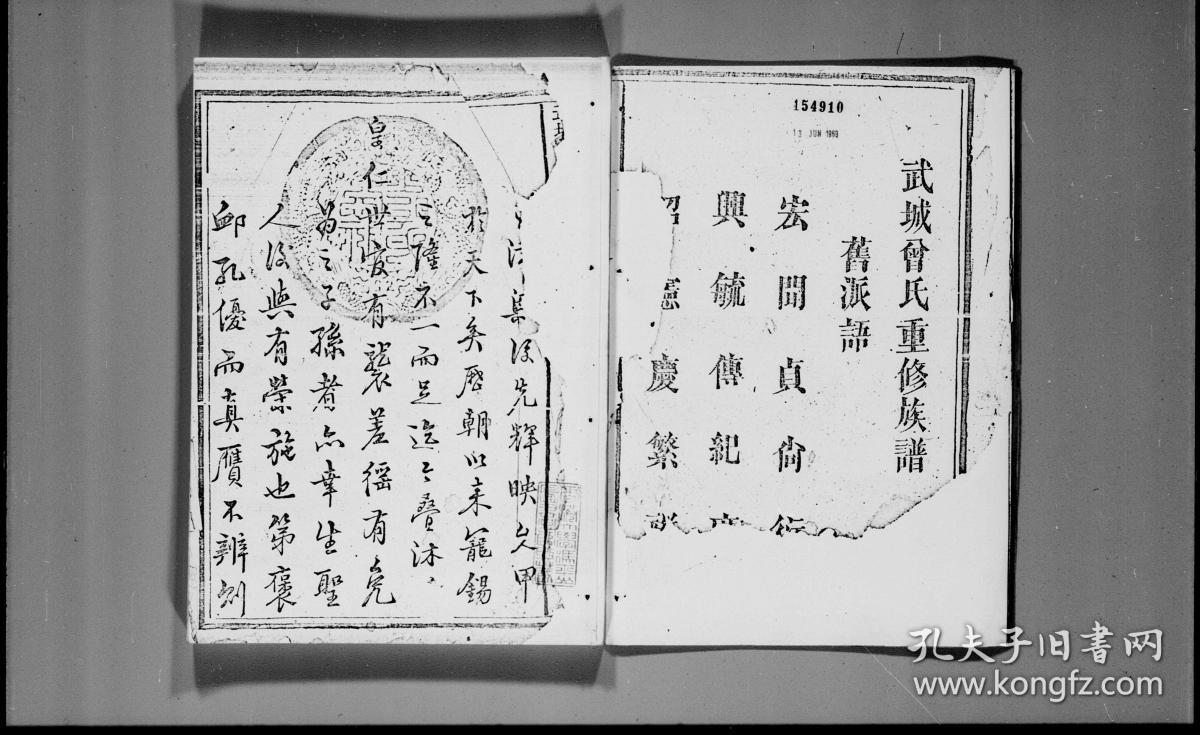 154910
13 JUN 1969
武城曾氏重修族譜
舊派語
宏聞貞尚衍
興毓傳紀廣
昭憲慶繁祥
集後先輝映久甲
於天下矣歷朝以来寵錫
之隆不一而足迄今疊沐
皇仁世度有襲差徭有免
為之子孫者亦幸生聖
人後與有榮施也第褒
邮孔優而真贋不辨則
孔夫子旧书网
www.kongfz.com